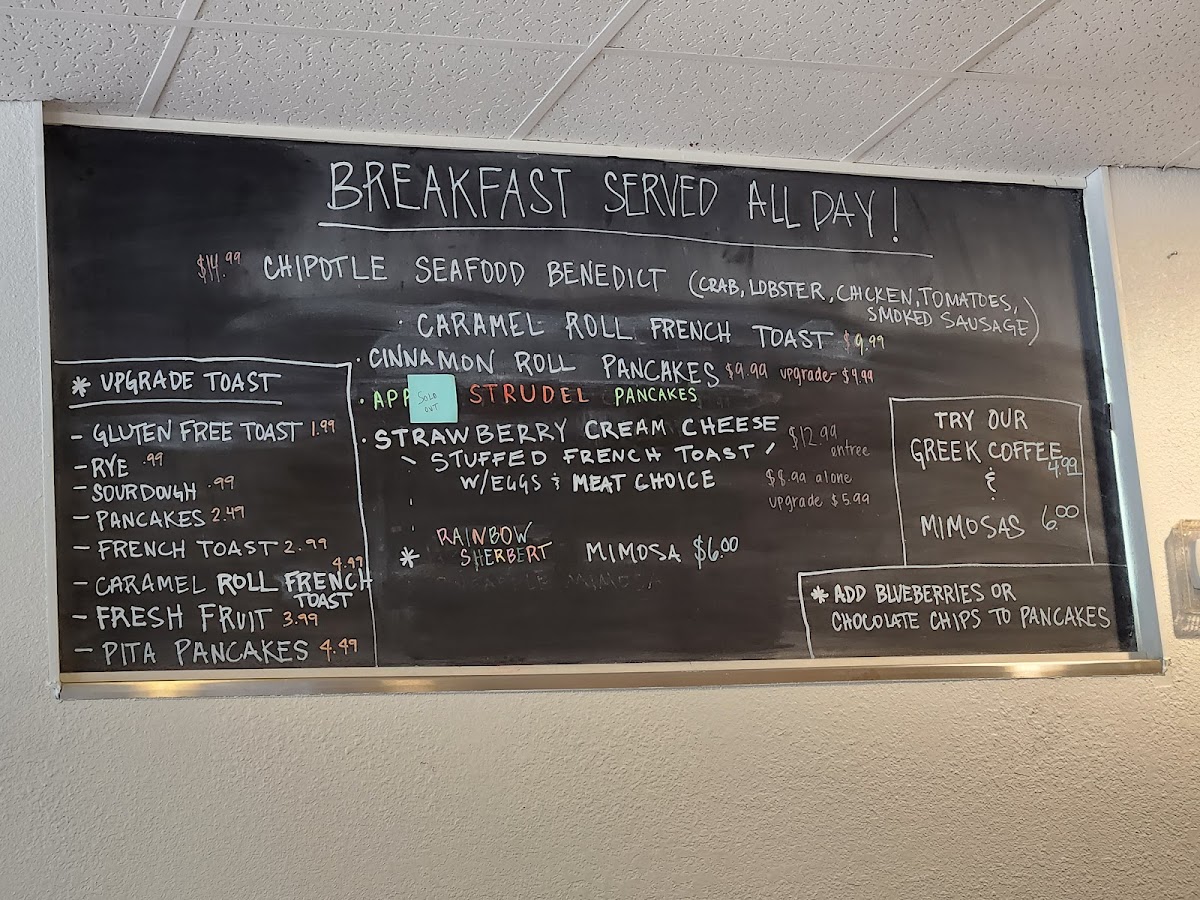 BREAKFAST SERVED ALL DAY!
$14.99 CHIPOTLE SEAFOOD BENEDICT (CRAB, LOBSTER, CHICKEN, TOMATOES,
SMOKED SAUSAGE)
· CARAMEL ROLL FRENCH TOAST $9.99
· CINNAMON ROLL PANCAKES $9.99 upgrade $4.99
· APP STRUDEL PANCAKES
SOLD
OUT
· STRAWBERRY CREAM CHEESE
STUFFED FRENCH TOAST
W/EGGS & MEAT CHOICE
$12.99
entree
$8.99 alone
upgrade $5.99
* RAINBOW
SHERBERT MIMOSA $6.00
* UPGRADE TOAST
- GLUTEN FREE TOAST 1.99
- RYE .99
- SOURDOUGH .99
- PANCAKES 2.49
- FRENCH TOAST 2.99
- CARAMEL ROLL FRENCH
TOAST 4.49
- FRESH FRUIT 3.99
- PITA PANCAKES 4.49
TRY OUR
GREEK COFFEE
4.99
&
MIMOSAS 6.00
* ADD BLUEBERRIES OR
CHOCOLATE CHIPS TO PANCAKES